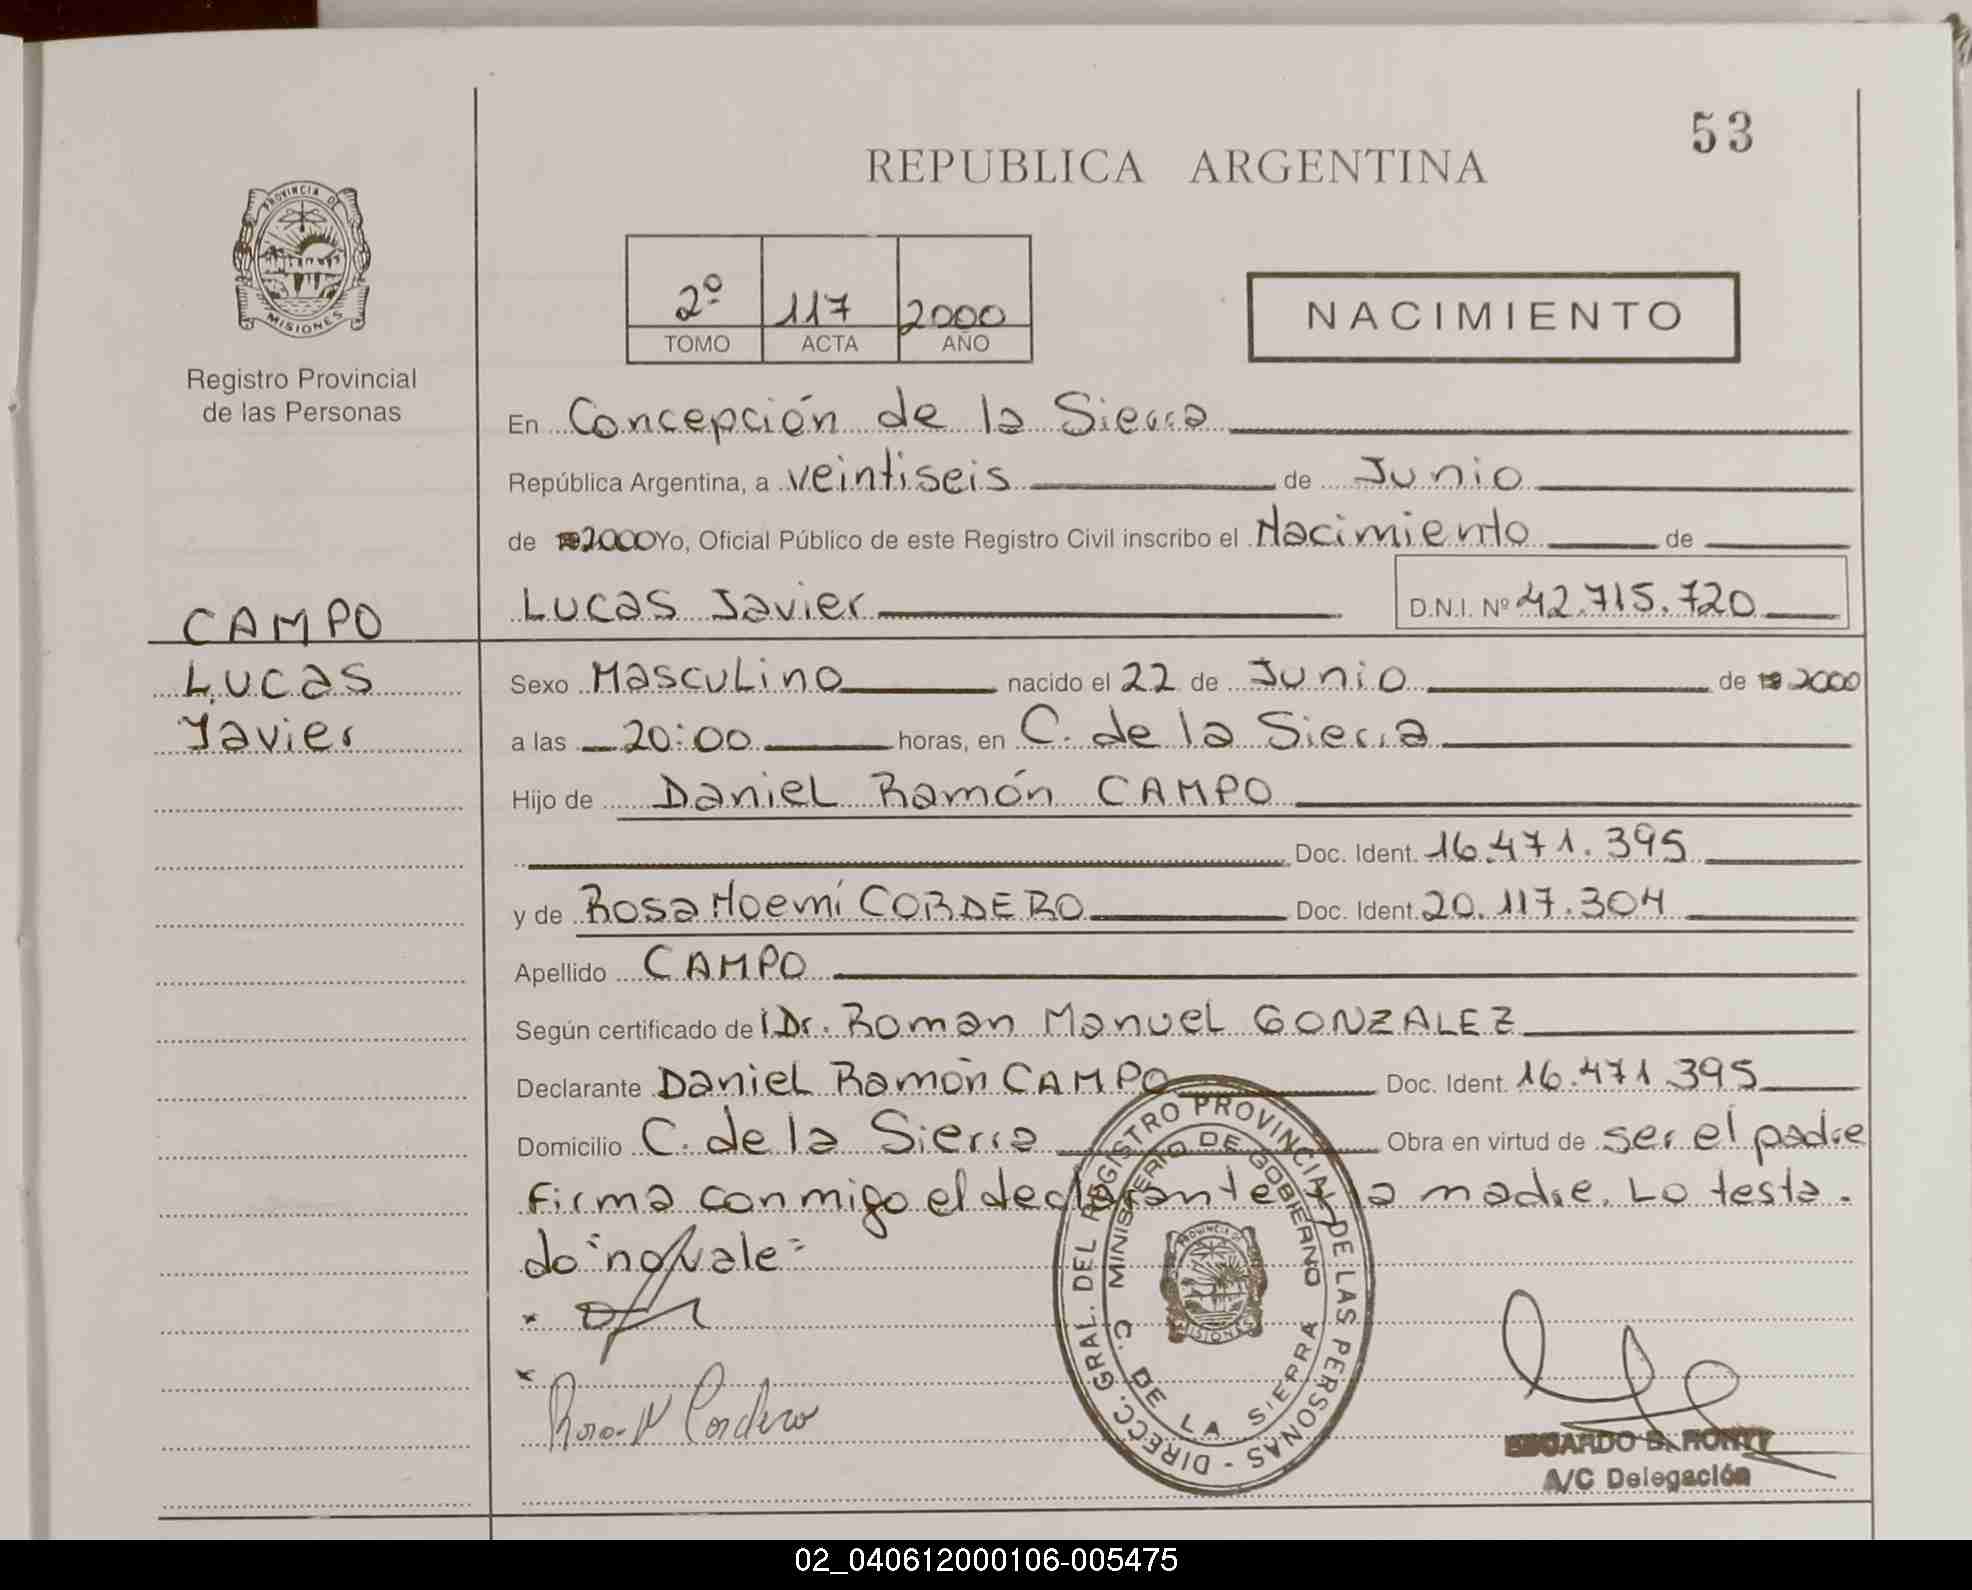 53
REPUBLICA ARGENTINA
PROVINCIA DE
MISIONES
Registro Provincial
de las Personas
2º 117 2000
TOMO ACTA AÑO
NACIMIENTO
En Concepción de la Sierra
República Argentina, a veintiseis de Junio
de 2000 Yo, Oficial Público de este Registro Civil inscribo el Nacimiento de
Lucas Javier D.N.I. Nº 42.715.720
CAMPO
Lucas
Javier
Sexo Masculino nacido el 22 de Junio de 19 2000
a las 20:00 horas, en C. de la Sierra
Hijo de Daniel Ramón CAMPO
Doc. Ident. 16.471.395
y de Rosa Noemí CORDERO Doc. Ident. 20.117.304
Apellido CAMPO
Según certificado de l Dr. Roman Manuel GONZALEZ
Declarante Daniel Ramón CAMPO Doc. Ident. 16.471.395
Domicilio C. de la Sierra Obra en virtud de ser el padre
Firma conmigo el declarante y la madre. Lo testa-
do "no vale"
Rosa N Cordero
DIRECC. GRAL. DEL REGISTRO PROVINCIAL DE LAS PERSONAS -
MINISTERIO DE GOBIERNO
PROVINCIA DE
MISIONES
C. DE LA SIERRA
A/C Delegación
02_040612000106-005475